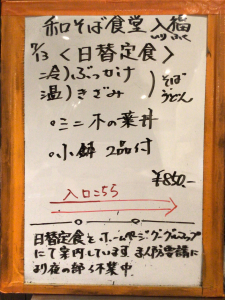 和そば食堂 入猫
7/13 <日替定食>
冷)ぶっかけ
温)きざみ
そば
うどん
○ミニ木の葉丼
○小鉢 2品付
¥850-
入口こちら
日替定食とホームページグーグルマップ
にて案内しています
より夜の部 休業中